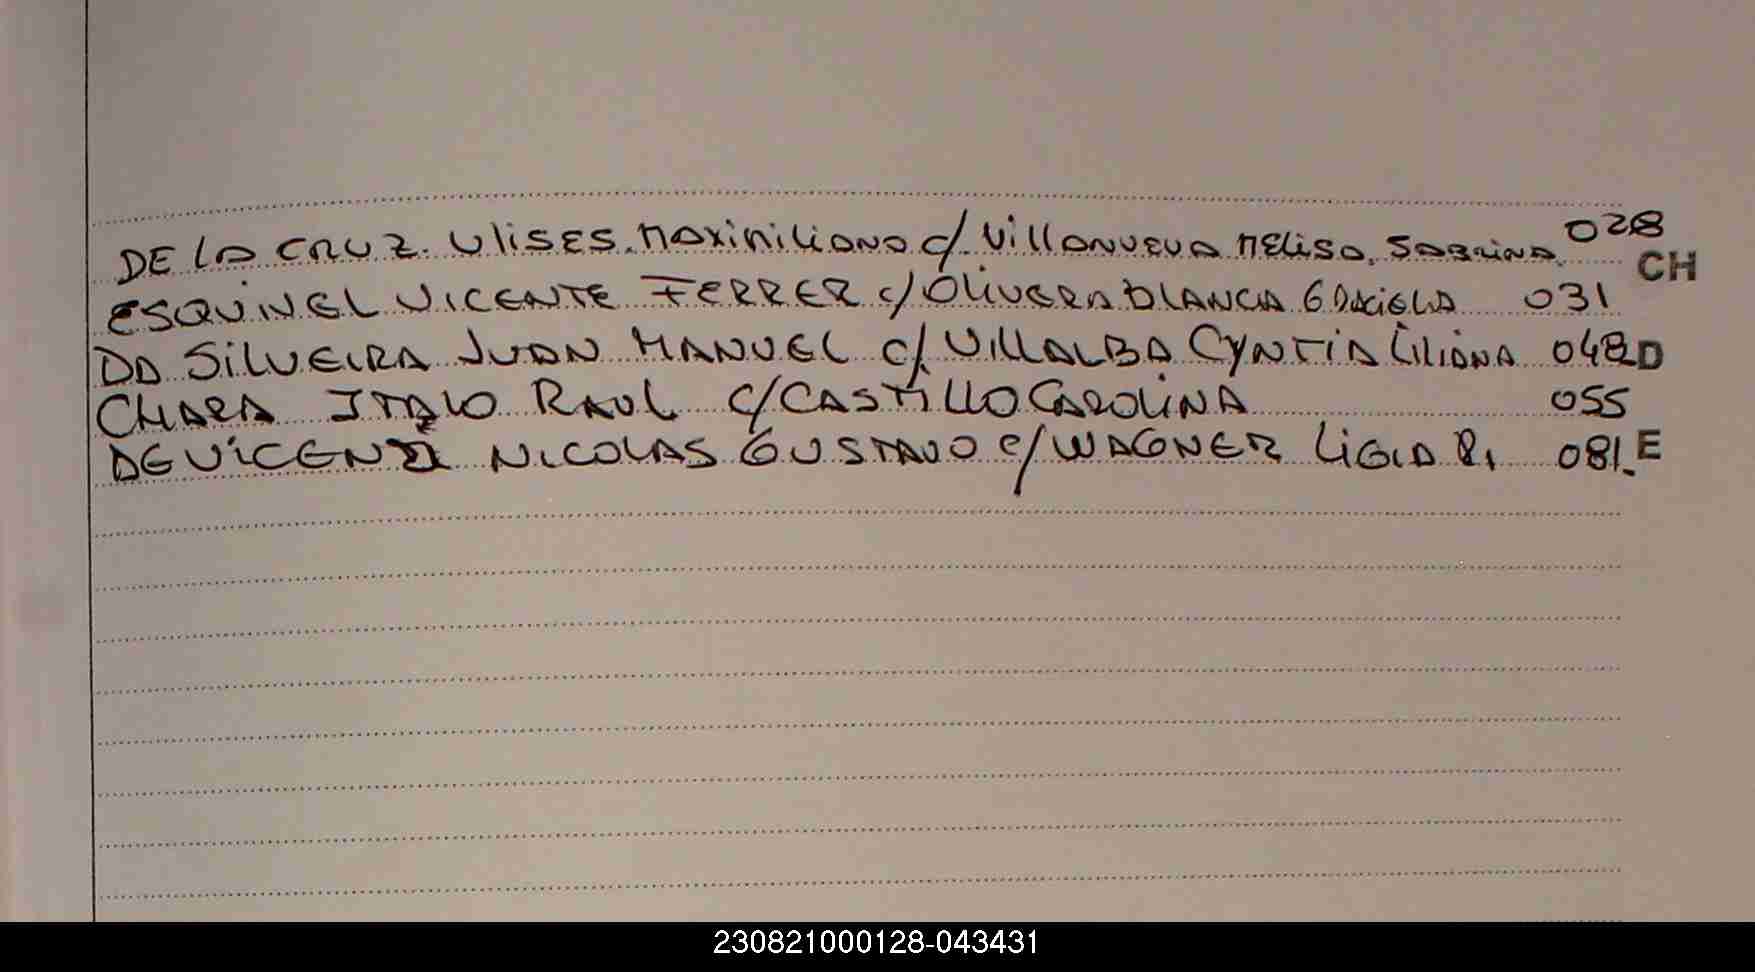 DE LA CRUZ. Ulises. Maximiliano c/ Villanueva Melisa. Sabrina. 028
CH
ESQUIVEL VICENTE FERRER c/ OLIVERA BLANCA GRACIELA 031
DA SILVEIRA JUAN MANUEL c/ VILLALBA CYNTIA LILIANA 048 D
CHARA ITALO RAUL c/ CASTILLO CAROLINA 055
DE VICENZI NICOLAS GUSTAVO c/ WAGNER LIGIA R. 081. E
230821000128-043431